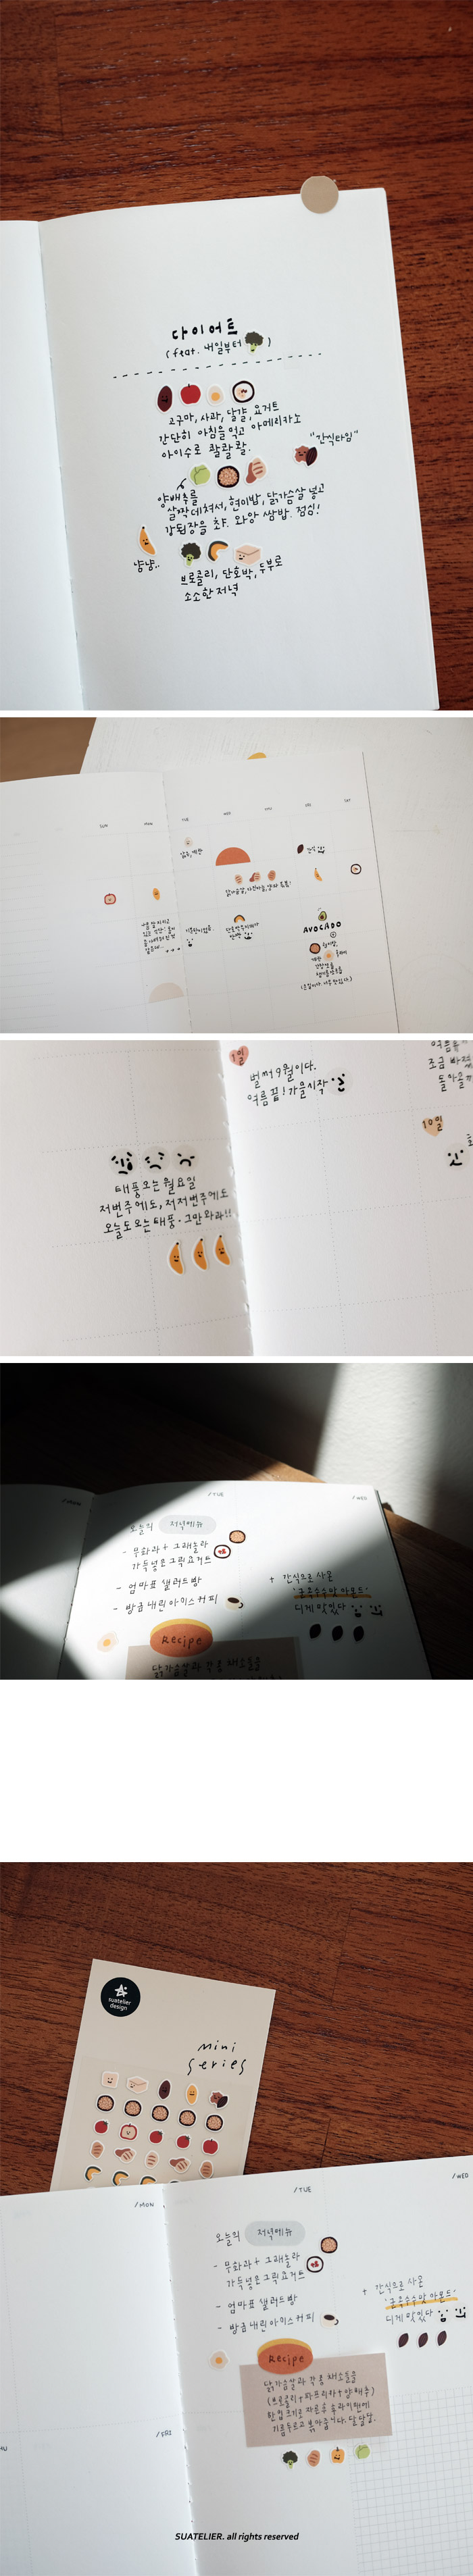 다이어트
(feat. 내일부터 )
고구마, 사과, 달걀, 요거트
간단히 아침을 먹고 아메리카노
아이수로 콸콸콸.
"간식타임"
양배추를
살짝 데쳐서, 현미밥, 닭가슴살 넣고
강된장을 촤. 와앙 쌈밥. 점심!
냠냠..
브로콜리, 단호박, 두부로
소소한 저녁
SUN
MON
TUE
WED
THU
FRI
SAT
간식
AVOCADO
1일
벌써 9월이다.
여름 끝! 가을 시작
여름
조금
10일
태풍오는 월요일
저번주에도, 저저번주에도
오늘도 오는 태풍. 그만 와라!!
/MON
/TUE
/WED
오늘의 저녁메뉴
- 무화과 + 그래놀라
가득넣은 그릭요거트
- 엄마표 샐러드빵
- 방금 내린 아이스 커피
+ 간식으로 사온
'군옥수수맛 아몬드'
디게 맛있다
Recipe
닭가슴살과 각종 채소들을
suatelier
design
mini
series
/MON
/TUE
/WED
오늘의 저녁메뉴
- 무화과 + 그래놀라
가득넣은 그릭요거트
- 엄마표 샐러드빵
- 방금 내린 아이스 커피
+ 간식으로 사온
'군옥수수맛 아몬드'
디게 맛있다
Recipe
닭가슴살과 각종 채소들을
(브로콜리+파프리카+양배추)
한입크기로 자른 후 후라이팬에
기름두르고 볶아줍니다. 달달달.
/FRI
HU
SUATELIER. all rights reserved